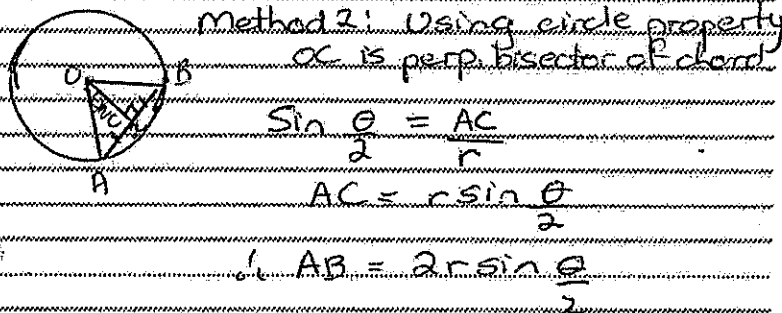 Method 2: Using circle property
OC is perp. bisector of chord
O
B
C
A
Sin θ/2 = AC/r
AC = r sin θ/2
∴ AB = 2r sin θ/2